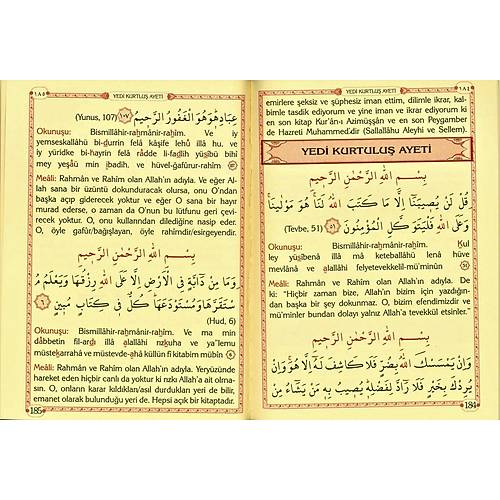 ١٨٤
YEDİ KURTULUŞ AYETİ
emirlere şeksiz ve şüphesiz iman ettim, dilimle ikrar, kal-
bimle tasdik ediyorum ve yine iman ve ikrar ediyorum ki
en son kitap Kur'ân-ı Azimüşşân ve en son Peygamber
de Hazreti Muhammed'dir (Sallallâhu Aleyhi ve Sellem).
YEDİ KURTULUŞ AYETİ
بِسْمِ اللهِ الرَّحْمٰنِ الرَّحِيمِ
قُلْ لَنْ يُصِيبَنَٓا اِلَّا مَا كَتَبَ اللهُ لَنَا هُوَ مَوْلٰينَا
وَعَلَى اللهِ فَلْيَتَوَكَّلِ الْمُؤْمِنُونَ ﴿٥١﴾ (Tevbe, 51)
Okunuşu: Bismillâhir-raḥmânir-raḥîm. Ḳul
ley yüṣîbenâ illâ mâ keteballâhü lenâ hüve
mevlânâ ve alallâhi felyetevekkelil-mü'minûn
Meâli: Rahmân ve Rahîm olan Allah'ın adıyla. De
ki: "Hiçbir zaman bize, Allah'ın bizim için yazdığın-
dan başka bir şey dokunmaz. O, bizim efendimizdir ve
mü'minler bundan dolayı yalnız Allah'a tevekkül etsinler."
بِسْمِ اللهِ الرَّحْمٰنِ الرَّحِيمِ
وَاِنْ يَمْسَسْكَ اللهُ بِضُرٍّ فَلَا كَاشِفَ لَهُٓ اِلَّا هُوَ وَاِنْ
يُرِدْكَ بِخَيْرٍ فَلَا رَٓادَّ لِفَضْلِهِ يُصِيبُ بِهِ مَنْ يَشَٓاءُ مِنْ
184
١٨٥
YEDİ KURTULUŞ AYETİ
عِبَادِهِ وَهُوَ الْغَفُورُ الرَّحِيمُ ﴿١٠٧﴾ (Yunus, 107)
Okunuşu: Bismillâhir-raḥmânir-raḥîm. Ve iy
yemseskallâhü bi-ḍurrin felâ kâşife lehû illâ hu, ve
iy yüridke bi-ḫayrin felâ râdde li-faḍlih yüṣîbü bihî
mey yeşâü min ıbadih, ve hüvel-ġafûrur-raḥîm
Meâli: Rahmân ve Rahîm olan Allah'ın adıyla. Ve eğer Al-
lah sana bir üzüntü dokunduracak olursa, onu O'ndan
başka açıp giderecek yoktur ve eğer O sana bir hayır
murad ederse, o zaman da O'nun bu lütfunu geri çevi-
recek yoktur. O, onu kullarından dilediğine nasip eder.
O, öyle gafûr/bağışlayan, öyle rahîmdir/esirgeyendir.
بِسْمِ اللهِ الرَّحْمٰنِ الرَّحِيمِ
وَمَا مِنْ دَٓابَّةٍ فِي الْاَرْضِ اِلَّا عَلَى اللهِ رِزْقُهَا وَيَعْلَمُ مُ
سْتَقَرَّهَا وَمُسْتَوْدَعَهَا كُلٌّ فِي كِتَابٍ مُبِينٍ ﴿٦﴾
(Hud, 6)
Okunuşu: Bismillâhir-raḥmânir-raḥîm. Ve ma min
dâbbetin fil-arḍı illâ alallâhi rızkuha ve ya'lemu
müsteḳarrahâ ve müstevde-ahâ küllün fî kitabim mübîn
Meâli: Rahmân ve Rahîm olan Allah'ın adıyla. Yeryüzünde
hareket eden hiçbir canlı da yoktur ki rızkı Allah'a ait olma-
sın. O, onların karar kıldıkları/asıl durdukları yeri de bilir,
emanet olarak bulunduğu yeri de. Hepsi açık bir kitaptadır.
185